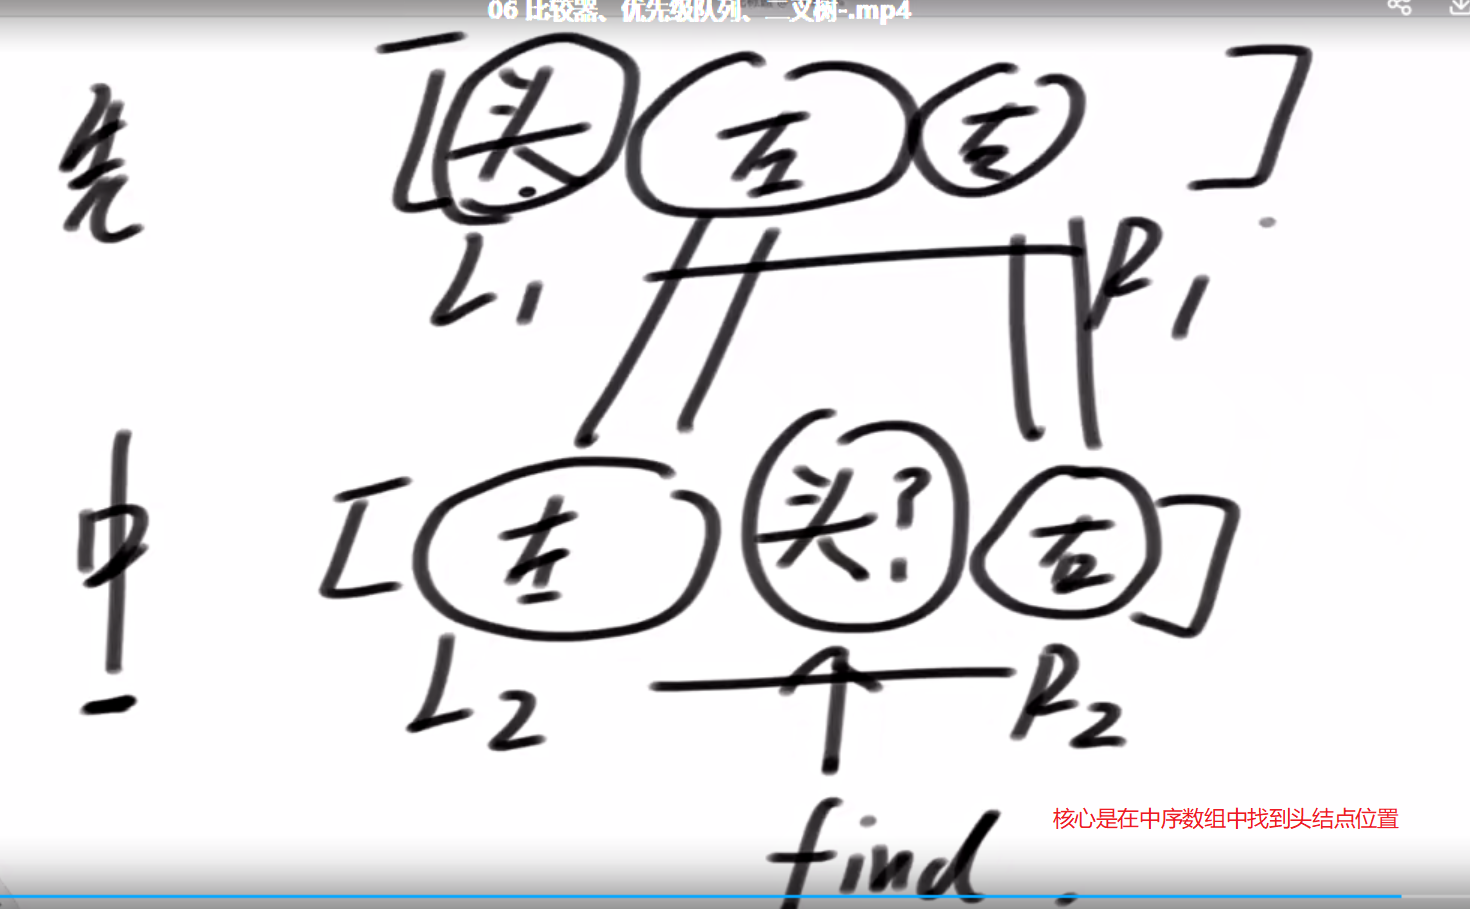 06 比较器、优先级队列、二叉树-.mp4
先 [ 头 左 右 ]
L1 R1
中 [ 左 头? 右 ]
L2 R2
核心是在中序数组中找到头结点位置
find